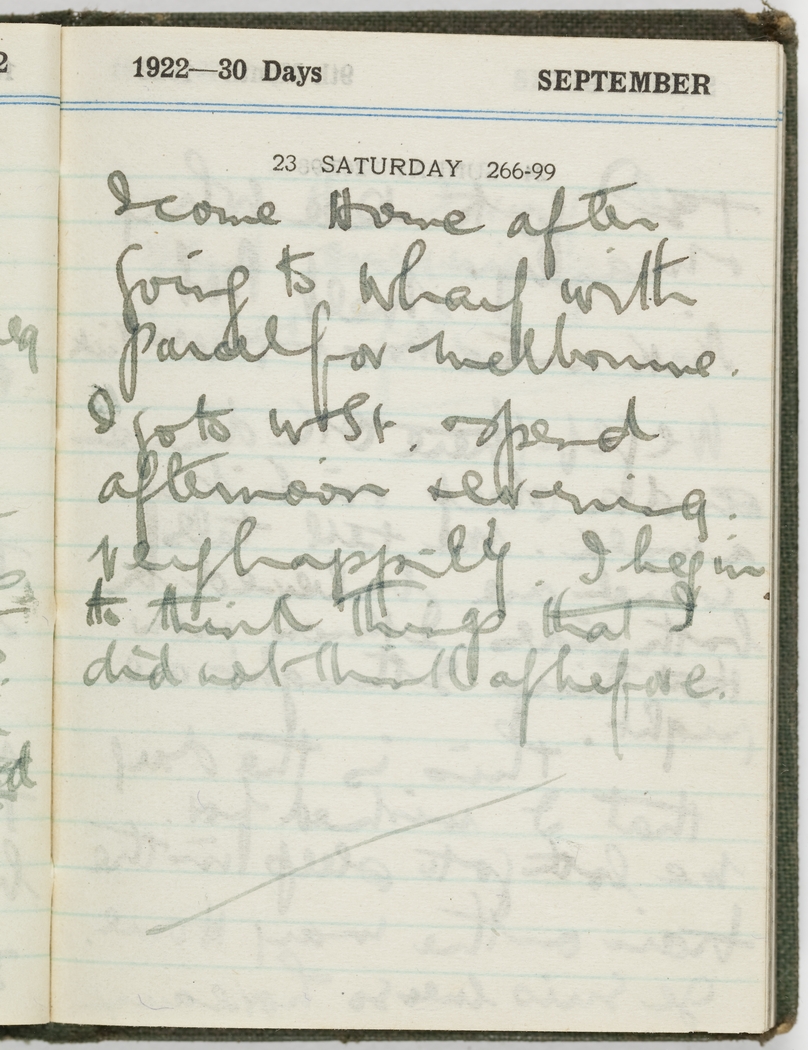 1922—30 Days SEPTEMBER
23 SATURDAY 266-99
I come Home after
going to Wharf with
parcel for Melbourne.
I go to W St. spend
afternoon & evening.
very happily. I begin
to think things that I
did not think of before.